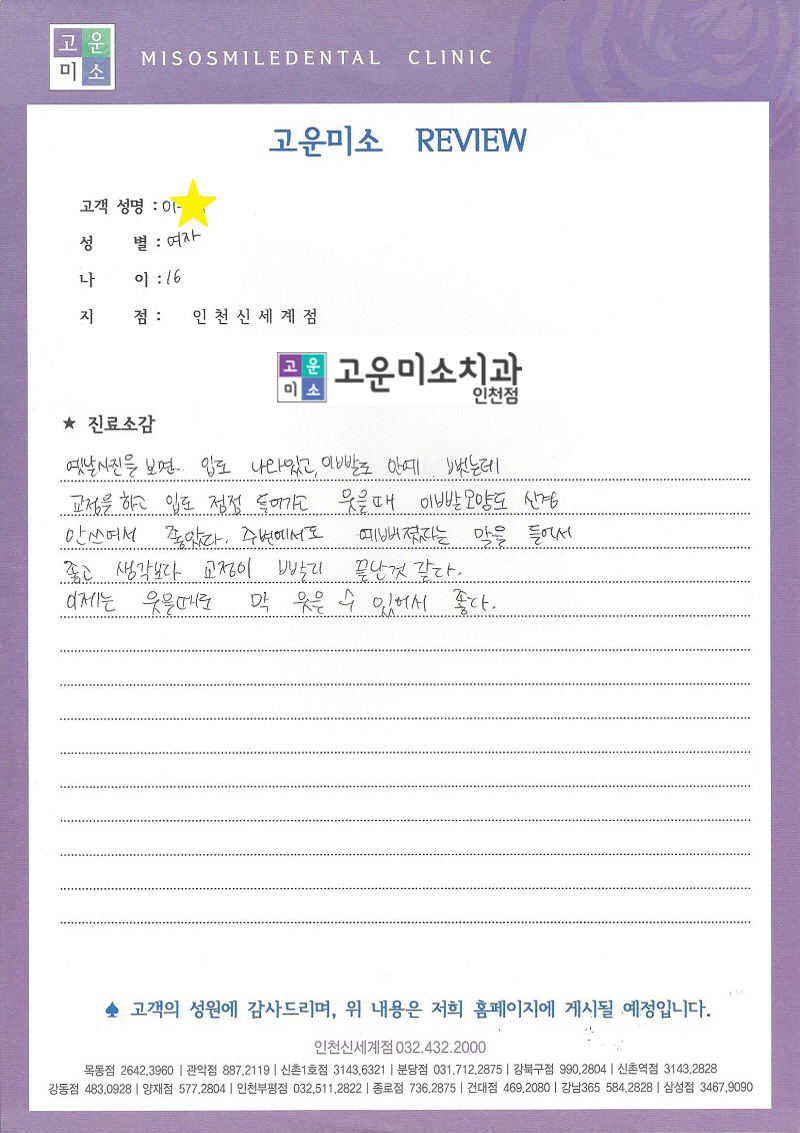 고운
미소
MISOSMILEDENTAL CLINIC
고운미소 REVIEW
고객 성명 : 이
성 별 : 여자
나 이 : 16
지 점 : 인천신세계점
고운
미소
고운미소치과
인천점
★ 진료소감
옛날사진을 보면 입도 나와있고, 이빨도 안예뻤는데
교정을 하고 입도 점점 들어가고 웃을때 이빨모양도 신경
안쓰여서 좋았다. 주변에서도 예뻐졌다는 말을 들어서
좋고 생각보다 교정이 빨리 끝난것 같다.
이제는 웃을때도 막 웃을 수 있어서 좋다.
♠ 고객의 성원에 감사드리며, 위 내용은 저희 홈페이지에 게시될 예정입니다.
인천신세계점 032.432.2000
목동점 2642.3960 | 관악점 887.2119 | 신촌1호점 3143.6321 | 분당점 031.712.2875 | 강북구점 990.2804 | 신촌역점 3143.2828
강동점 483.0928 | 양재점 577.2804 | 인천부평점 032.511.2822 | 종로점 736.2875 | 건대점 469.2080 | 강남365 584.2828 | 삼성점 3467.9090